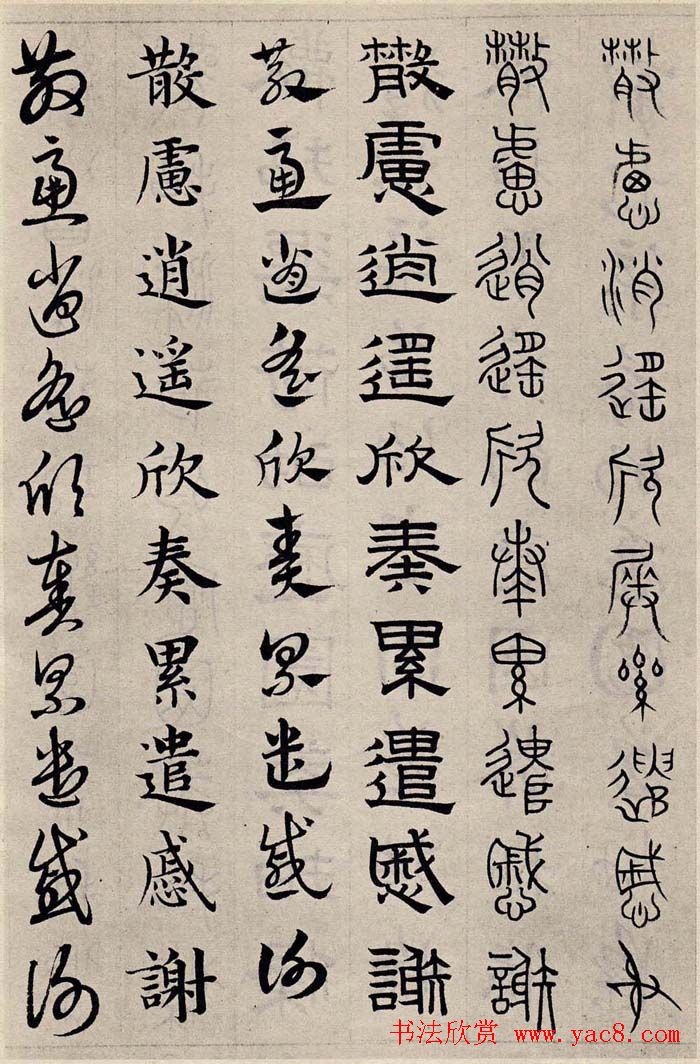 散慮消遙欣奏累遣慼謝
散慮逍遙欣奏累遣慼謝
散慮逍遙欣奏累遣慼謝
散慮逍遥欣奏累遣慼謝
散慮逍遥欣奏累遣慼謝
散慮逍遥欣奏累遣慼謝
书法欣赏 www.yac8.com